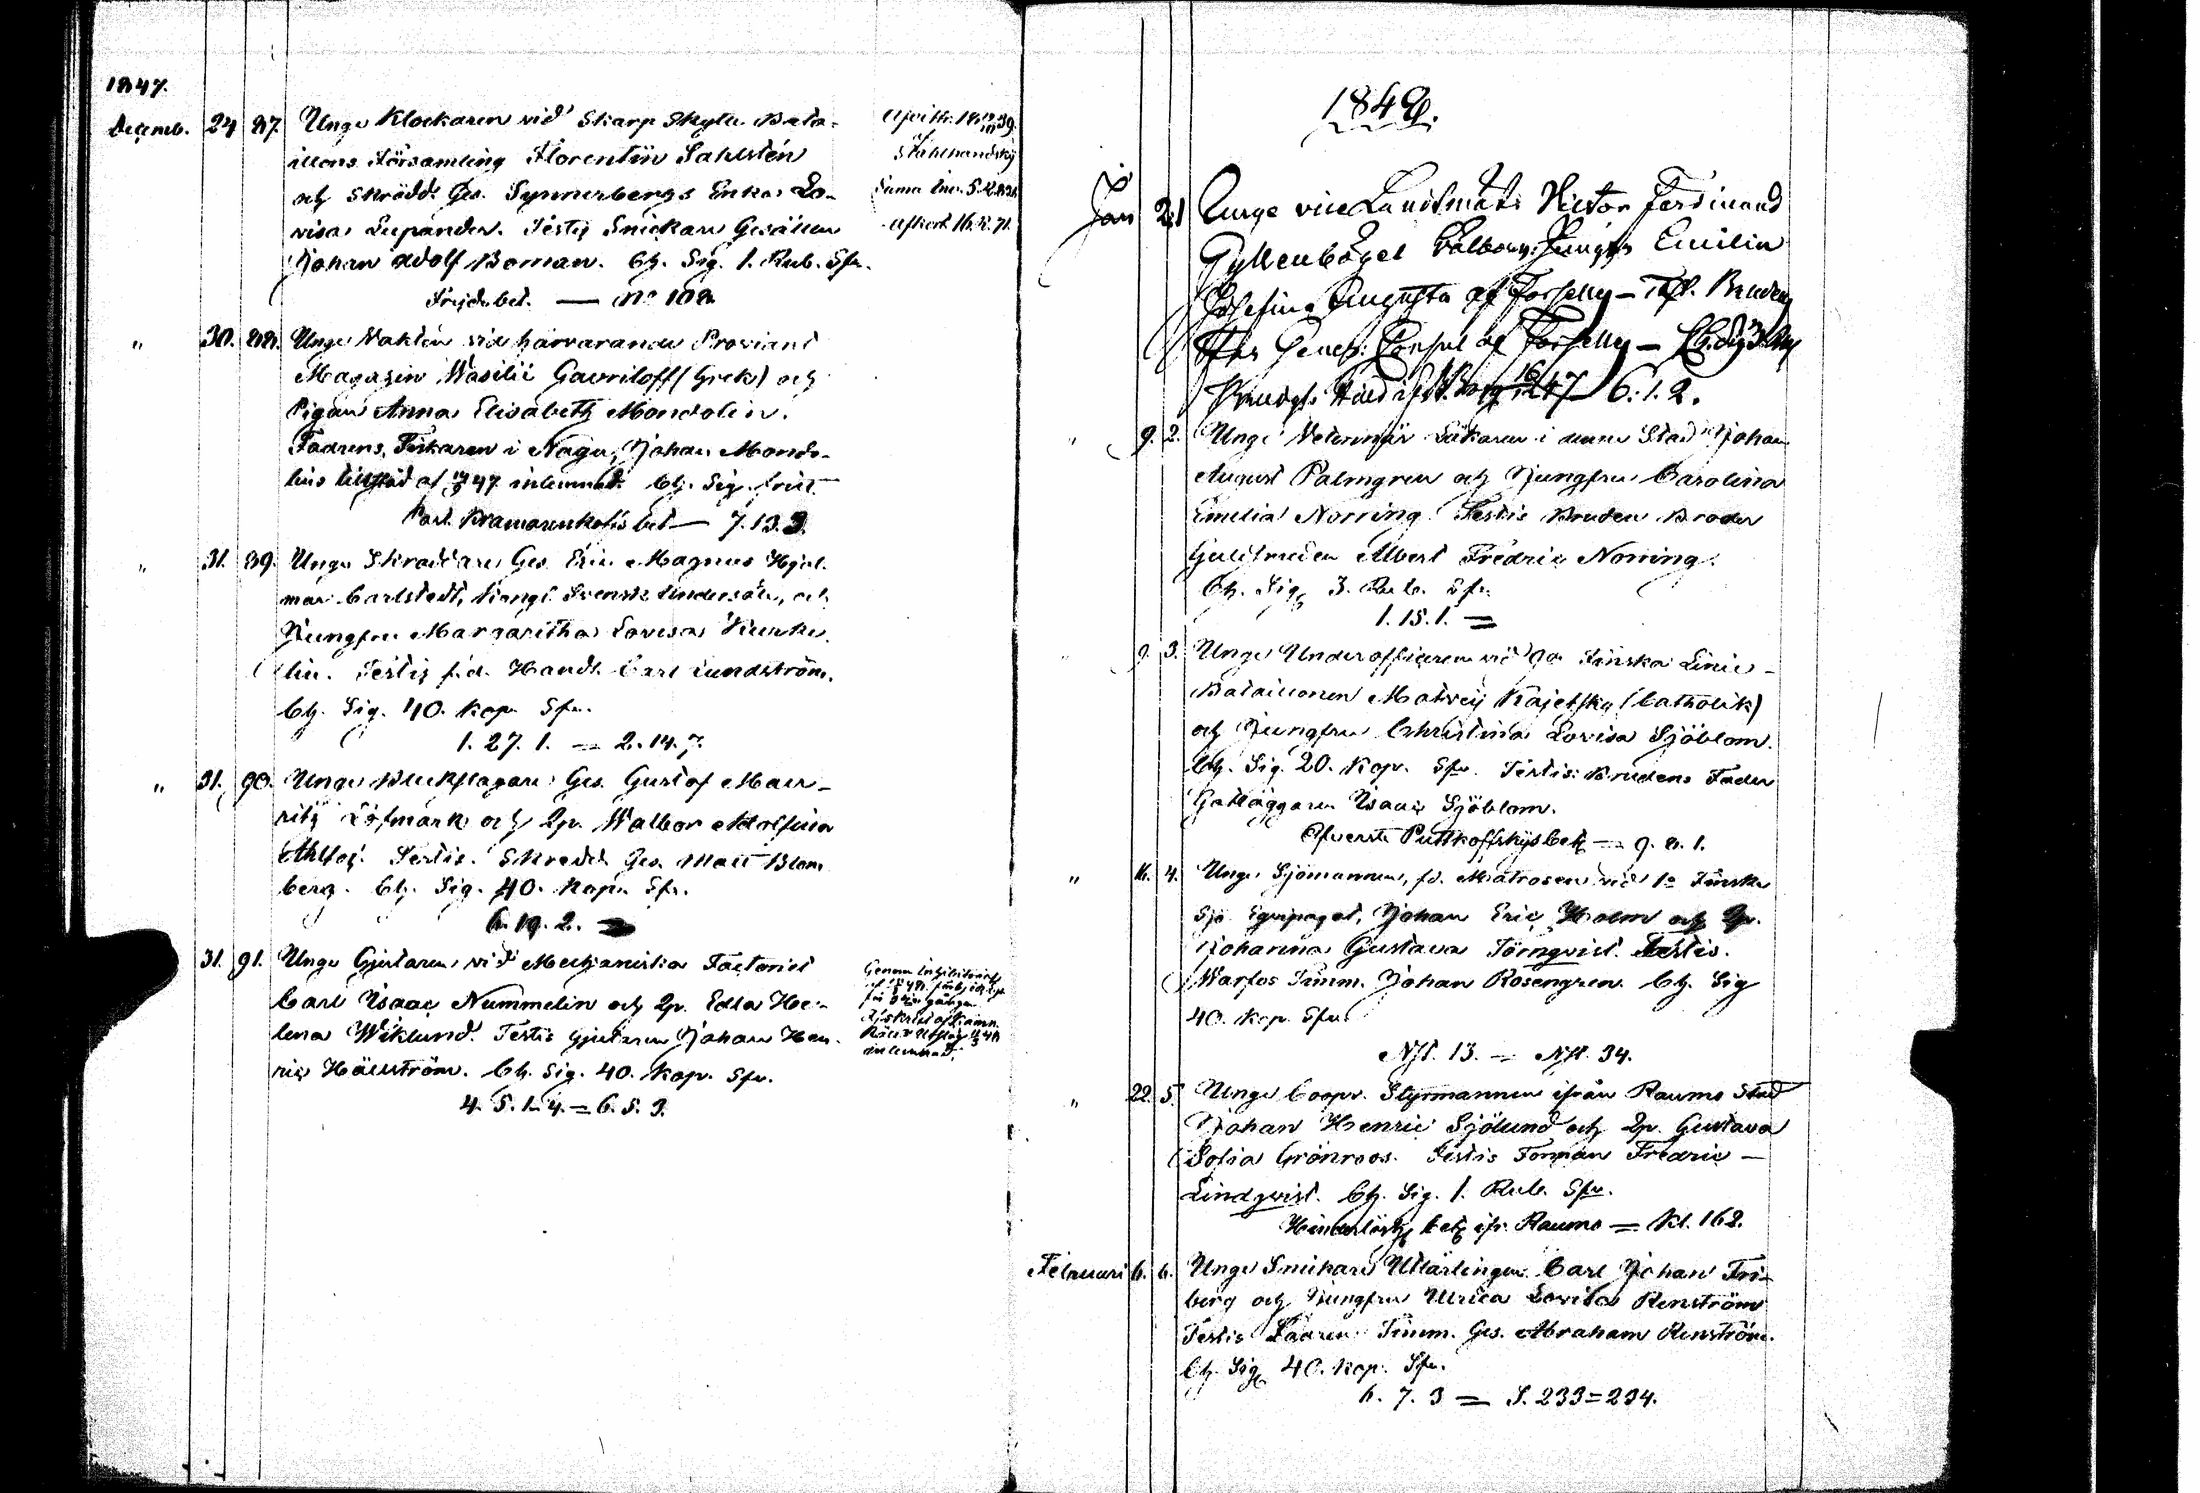 1847.
Decemb. 24 87. Unge Klockaren vid Skarp Skytte Bata-
illons Församling Florentin Sahlstén
och Skrädd. Ges. Synnerbergs Enka Lo-
visa Lupander. Testis Snickare Gesällen
Johan Adolf Boman. Ch. Sig. 1. Rub. Sfr.
Frejdebet. — No 108.
Afvittr.
Stålhandske
Afkort. 16. 12. 71.
" 30. 88. Unge Vakten vid härvarande Proviant
Magazin Wasilii Gavriloff (Grek) och
Pigan Anna Elisabeth Mondolin.
Fadrens, Fiskaren i Nagu, Johan Mondo-
lins tillstånd af 47 inlemnadt. Ch. Sig. fritt.
bet — 7. 13. 3.
" 31. 89. Unge Skräddare Ges. Eric Magnus Hjal-
mar Carlstedt, Svensk Undersåte, och
Jungfru Margaretha Lovisa
lin. Testis f.d. Handl. Carl Lundström.
Ch. Sig. 40. Kop. Sfr.
1. 27. 1. = 2. 14. 7.
" 31. 90. Unge Bleckslagare Ges. Gustaf Mau-
ritz Löfmark och Pp. Walbor Adolfina
Ahlfors. Testis. Skrädd. Ges. Matt Blom
berg. Ch. Sig. 40. Kop. Sfr.
6. 19. 2. =
31. 91. Unge Gjutaren vid Mechaniska Factoriet
Carl Isaac Nummelin och Pp. Edla He-
lena Wiklund. Testis Gjutaren Johan Hen-
ric Hällström. Ch. Sig. 40. Kop. Sfr.
4. 5. 1. 4. = 6. 5. 3.
Genom
inlemnad.
1848.
Jan 2 1 Unge vice Landtmät. Victor Ferdinand
Gyllenbögel Välborg. Jungfr Emilia
Josefina Augusta af Forselles — Test. Brudens
Far Consul af Forselles — Ch. Sig 3. Rub
47 6. 1. 2.
" 9. 2. Unge Veterinär Läkaren i denna Stad Johan
August Palmgren och Jungfru Carolina
Emelia Norring. Testis Brudens Broder
Guldsmeden Albert Fredric Norring.
Ch. Sig. 3. Rub. Sfr.
1. 15. 1. =
" 9. 3. Unge Underofficeren vid Finska Linie-
Bataillonen Matvej Kajetsky (Catholik)
och Jungfru Christina Lovisa Sjöblom.
Ch. Sig. 20. Kop. Sfr. Testis: Brudens Fader
Gatläggaren Isaac Sjöblom.
Öfverste Puttkoffskys bet. — 9. 8. 1.
" 16. 4. Unge Sjömannen, fd. Matrosen vid 1a Finska
Sjö Equipaget, Johan Eric Holm och Pp.
Johanna Gustava Törnqvist. Testis.
Warfos Timm. Johan Rosengren. Ch. Sig
40. Kop. Sfr.
Nst. 13. = Nst. 34.
" 22. 5. Unge Coopv. Styrmannen ifrån Raumo Stad
Johan Henric Sjölund och Pp. Gustava
Sofia Grönroos. Testis Forman Fredric —
Lindqvist. Ch. Sig. 1. Rub. Sfr.
Hinderlösh. bet. ifr. Raumo = Kl. 162.
Februari 6. 6. Unge Snickare Utlärlingen Carl Johan Fri-
berg och Jungfru Ulrica Lovisa Renström
Testis Fadren Timm. Ges. Abraham Renström.
Ch. Sig. 40. Kop. Sfr.
6. 7. 3 = S. 233 = 234.